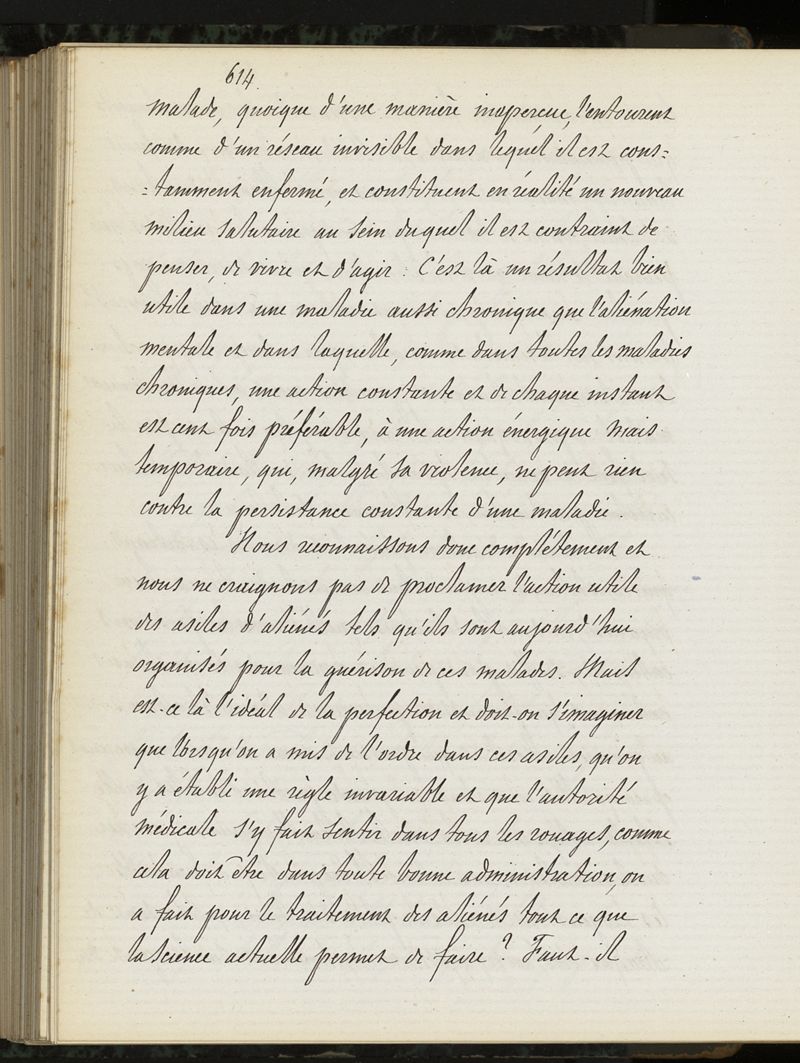 614.
malade, quoique d'une manière inaperçue, l'entourent
comme d'un réseau invisible dans lequel il est cons=
=tamment enfermé, et constituent en réalité un nouveau
milieu salutaire au sein duquel il est contraint de
penser, de vivre et d'agir. C'est là un résultat bien
utile dans une maladie aussi chronique que l'aliénation
mentale et dans laquelle, comme dans toutes les maladies
chroniques, une action constante et de chaque instant
est cent fois préférable, à une action énergique mais
temporaire, qui, malgré sa violence, ne peut rien
contre la persistance constante d'une maladie.
Nous reconnaissons donc complétement et
nous ne craignons pas de proclamer l'action utile
des asiles d'aliénés tels qu'ils sont aujourd'hui
organisés pour la guérison de ces malades. Mais
est-ce là l'idéal de la perfection et doit-on s'imaginer
que lorsqu'on a mis de l'ordre dans ces asiles, qu'on
y a établi une règle invariable et que l'autorité
médicale s'y fait sentir dans tous les rouages, comme
cela doit être dans toute bonne administration, on
a fait pour le traitement des aliénés tout ce que
la science actuelle permet de faire ? Faut-il